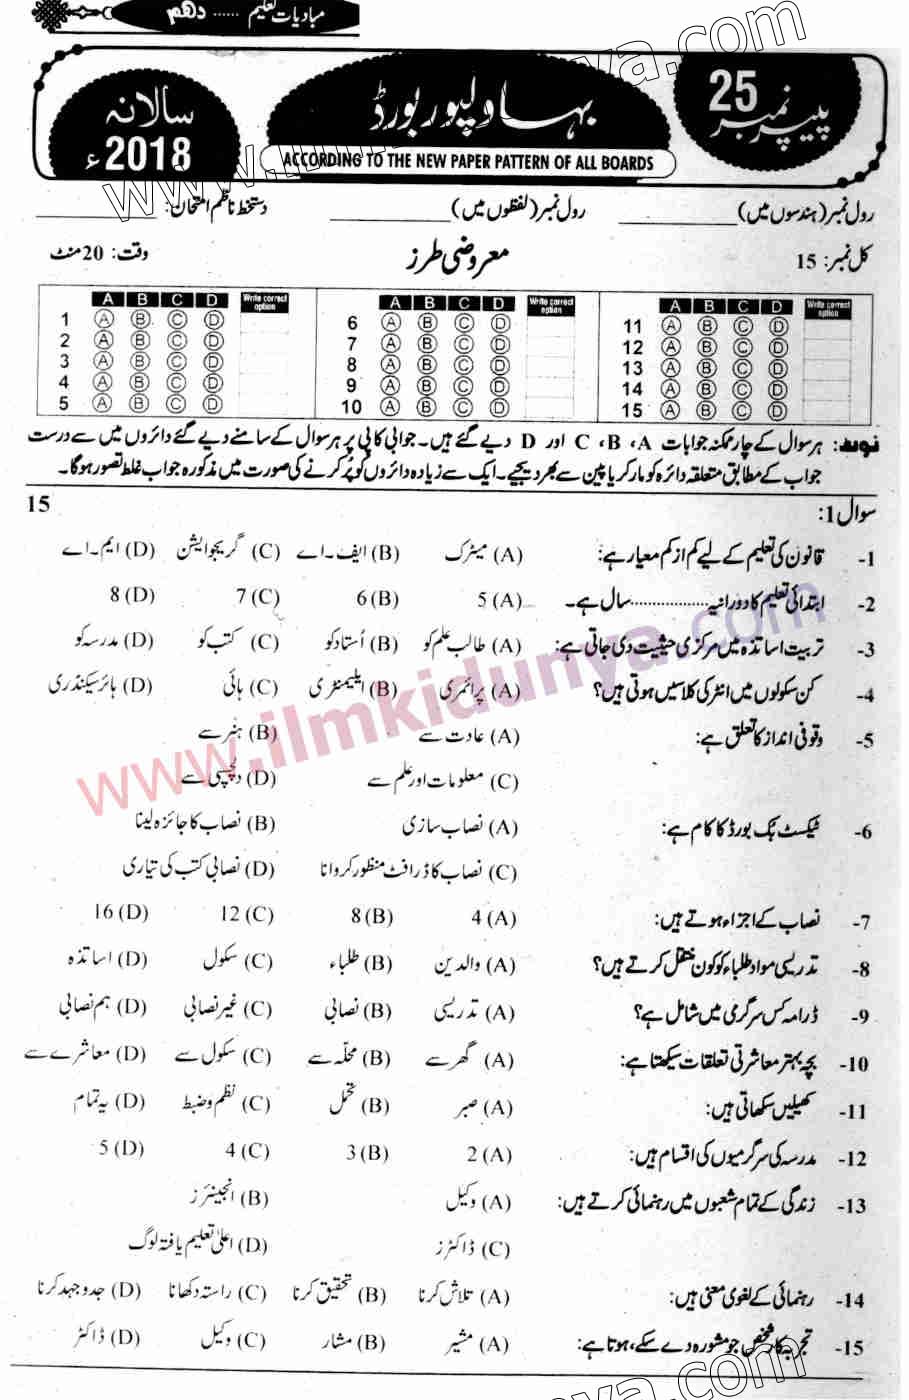 مبادیات تعلیم ...... دھم
پیپر نمبر 25
بہاولپور بورڈ
ACCORDING TO THE NEW PAPER PATTERN OF ALL BOARDS
سالانہ
2018ء
رول نمبر (ہندسوں میں) ____________ رول نمبر (لفظوں میں) ____________ دستخط ناظم امتحان: ____________
کل نمبر: 15 معروضی طرز وقت: 20 منٹ
A B C D Write correct option
1 A B C D
2 A B C D
3 A B C D
4 A B C D
5 A B C D
A B C D Write correct option
6 A B C D
7 A B C D
8 A B C D
9 A B C D
10 A B C D
A B C D Write correct option
11 A B C D
12 A B C D
13 A B C D
14 A B C D
15 A B C D
نوٹ: ہر سوال کے چار ممکنہ جوابات A، B، C اور D دیے گئے ہیں۔ جوابی کاپی پر ہر سوال کے سامنے دیے گئے دائروں میں سے درست
جواب کے مطابق متعلقہ دائرہ کو مارکر یا پین سے بھر دیجیے۔ ایک سے زیادہ دائروں کو پُر کرنے کی صورت میں مذکورہ جواب غلط تصور ہوگا۔
سوال 1: 15
1- قانون کی تعلیم کے لیے کم از کم معیار ہے: (A) میٹرک (B) ایف۔اے (C) گریجوایشن (D) ایم۔اے
2- ابتدائی تعلیم کا دورانیہ .................. سال ہے۔ (A) 5 (B) 6 (C) 7 (D) 8
3- تربیت اساتذہ میں مرکزی حیثیت دی جاتی ہے: (A) طالب علم کو (B) اُستاد کو (C) کتب کو (D) مدرسہ کو
4- کن سکولوں میں انٹر کی کلاسیں ہوتی ہیں؟ (A) پرائمری (B) ایلیمنٹری (C) ہائی (D) ہائر سیکنڈری
5- وقوفی انداز کا تعلق ہے: (A) عادت سے (B) ہنر سے
(C) معلومات اور علم سے (D) دلچسپی سے
6- ٹیکسٹ بک بورڈ کا کام ہے: (A) نصاب سازی (B) نصاب کا جائزہ لینا
(C) نصاب کا ڈرافٹ منظور کروانا (D) نصابی کتب کی تیاری
7- نصاب کے اجزاء ہوتے ہیں: (A) 4 (B) 8 (C) 12 (D) 16
8- تدریسی مواد طلباء کو کون منتقل کرتے ہیں؟ (A) والدین (B) طلباء (C) سکول (D) اساتذہ
9- ڈرامہ کس سرگرمی میں شامل ہے؟ (A) تدریسی (B) نصابی (C) غیر نصابی (D) ہم نصابی
10- بچہ بہتر معاشرتی تعلقات سیکھتا ہے: (A) گھر سے (B) محلّہ سے (C) سکول سے (D) معاشرے سے
11- کھیلیں سکھاتی ہیں: (A) صبر (B) تحمل (C) نظم و ضبط (D) یہ تمام
12- مدرسہ کی سرگرمیوں کی اقسام ہیں: (A) 2 (B) 3 (C) 4 (D) 5
13- زندگی کے تمام شعبوں میں رہنمائی کرتے ہیں: (A) وکیل (B) انجینئرز
(C) ڈاکٹرز (D) اعلیٰ تعلیم یافتہ لوگ
14- رہنمائی کے لغوی معنی ہیں: (A) تلاش کرنا (B) تحقیق کرنا (C) راستہ دکھانا (D) جدوجہد کرنا
15- تجربہ کار شخص جو مشورہ دے سکے، ہوتا ہے: (A) مشیر (B) مشار (C) وکیل (D) ڈاکٹر
www.ilmkidunya.com